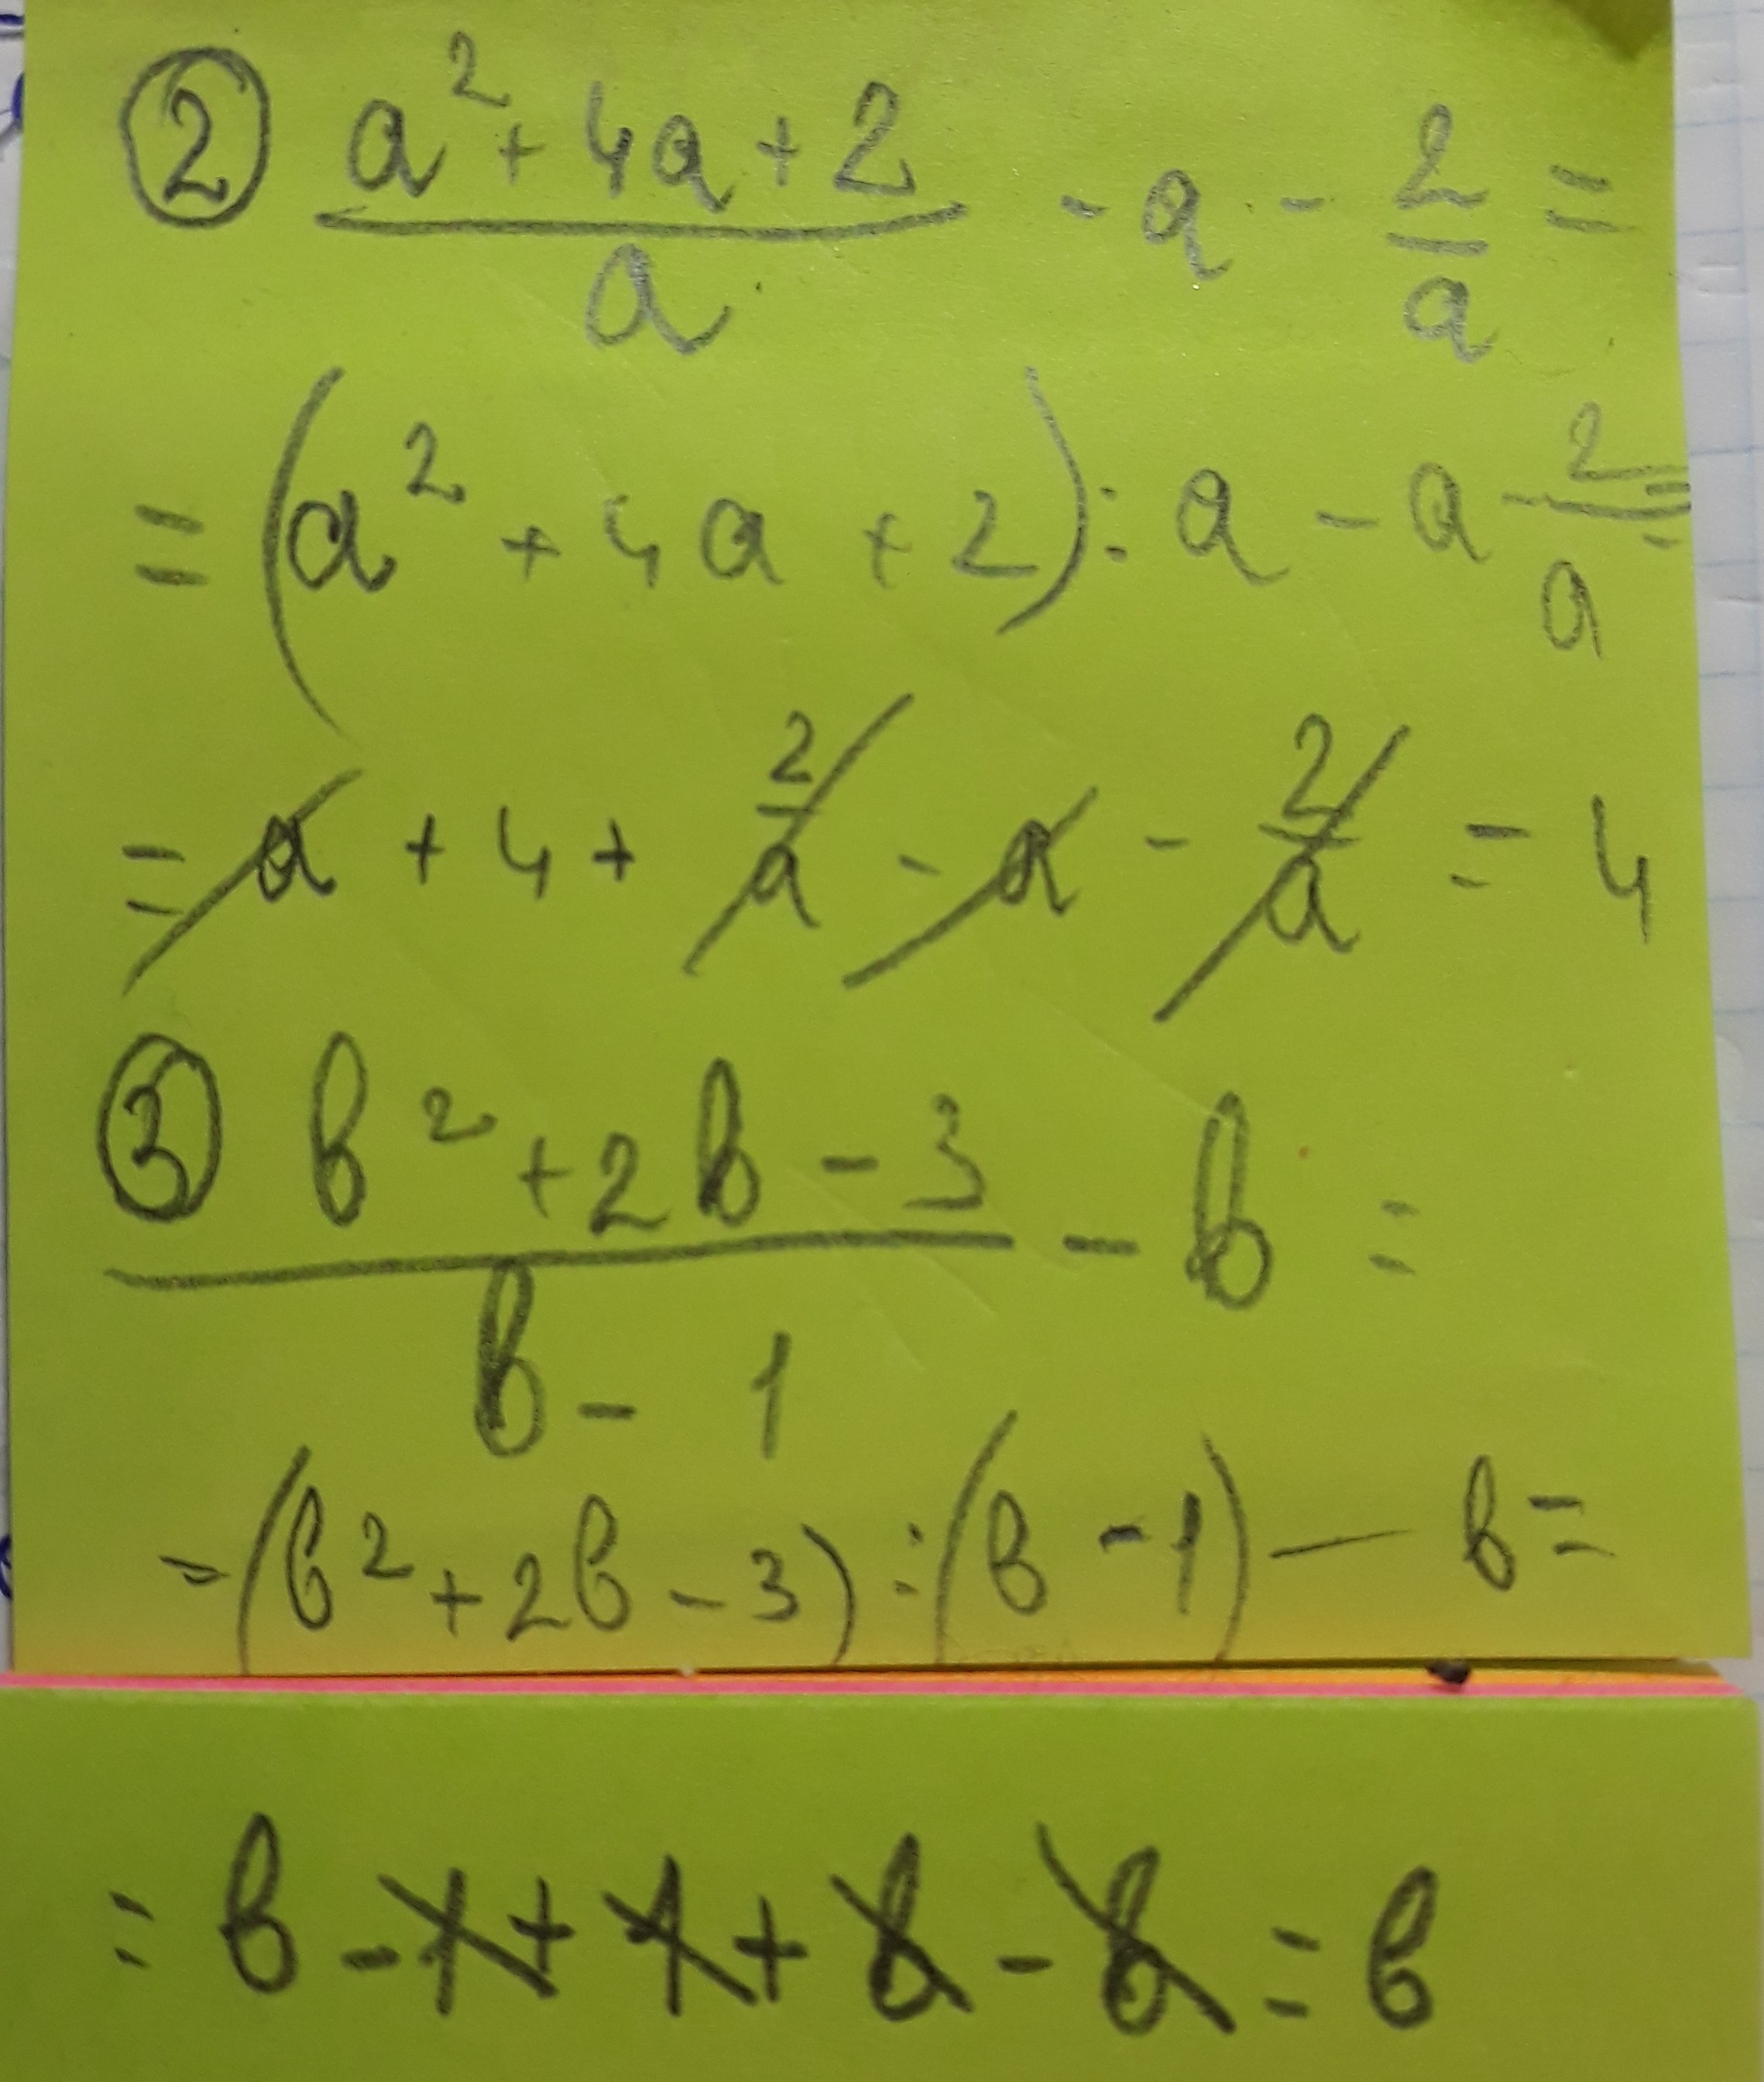 ② (a² + 4a + 2)/a - a - 2/a =
= (a² + 4a + 2) : a - a - 2/a =
= a + 4 + 2/a - a - 2/a = 4
③ (b² + 2b - 3)/(b - 1) - b =
= (b² + 2b - 3) : (b - 1) - b =
= b - 1 + 1 + b - b = b